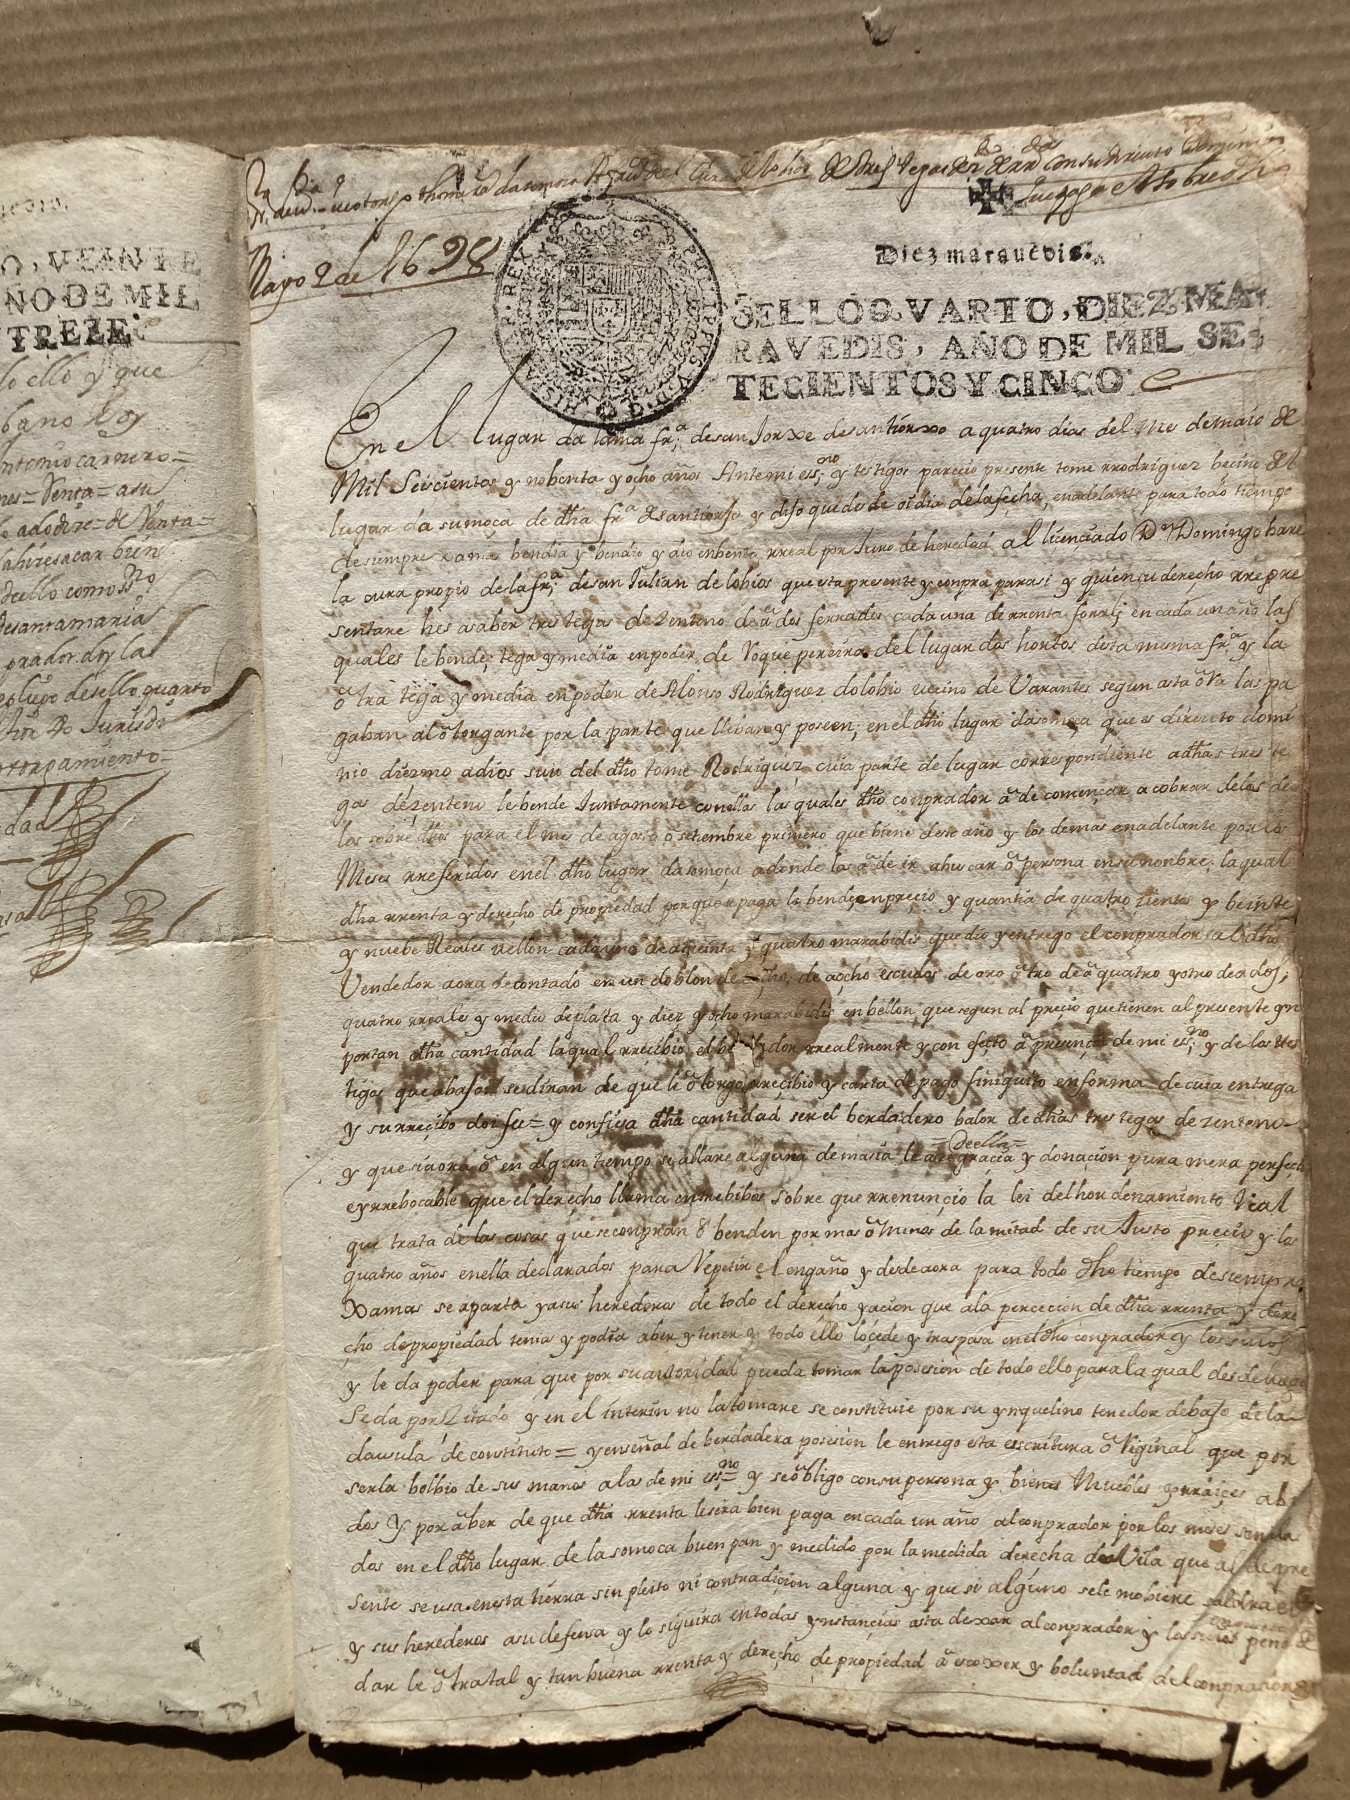 O, VEINTE
AÑO DE MIL
TREZE
lo ello y que
bano Doy
Antonio carnero =
nes = Venta = asu
o adodire = de Venta =
desantamaria
prador doy la
pliego de sello quarto
Jurisdi
otorgamiento
edad
de Lobios de tres tegas
Mayo 2 de 1698
Diez marauedis.
SELLO QVARTO, DIEZ MA-
RAVEDIS, AÑO DE MIL SE-
TECIENTOS Y CINCO.
En el lugar da lama frª de san Jorxe de santiorxo a quatro dias del mes de maio de
Mil Seiscientos y nobenta y ocho años Antemi essno y testigos parecio presente tome rrodriguez becino del
lugar da sumoça de dha frª de santiorxo y dijo que desde oi dia de la fecha, en adelante para todo tiempo
de siempre xamas bendia y bendio y dio en benta rreal por Juro de heredad al licenciado Dn Domingo bare
la cura propio de la frª de san Julian de lobios que esta presente y conpra para si y quien su derecho rrepre
sentare hes asaber tres tegas de zenteno de a dos ferrados cada una de rrenta foral; en cada un año las
quales le bende; tega y media en poder de Roque pereira del lugar dos hortos desta mesma frª y la
otra tega y media en poder de Alonso Rodriguez dolobio uecino de Varantes segun asta ora las pa
gaban al otorgante por la parte que lleban y poseen; en el dho lugar da somoça que es direuto domi
nio diezmo a dios suio del dho tome Rodriguez, cuia parte de lugar correspondiente a dhas tres te
gas de zenteno le bende Juntamente con ellas las quales dho conprador a de començar a cobrar de los de
los sobre dhos para el mes de agosto o setiembre primero que biene deste año y los demas en adelante por los
Meses rreferidos en el dho lugar da somoça a donde las a de ir a buscar o persona en su nonbre; la qual
dha rrenta y derecho de propiedad porque paga la bende en precio y quantia de quatro zientos y beinte
y nuebe Reales uellon cada uno de a treinta y quatro marabidis que dio y entrego el conprador al dho
Vendedor aora de contado en un doblon de a ocho; de a ocho escudos de oro otro de a quatro y otro de a dos;
quatro rreales y medio de plata y diez y ocho marabidis en bellon que segun al precio que tienen al presente yn
portan dha cantidad la qual rrecibio el bendedor rrealmente y con efecto a presencia de mi essno y de los tes
tigos que abajo se diran de que le otorgo rrecibio y carta de pago finiquito en forma de cuia entrega
y su rrecibo doi fee = y confiesa dha cantidad ser el berdadero balor de dhas tres tegas de zenteno
=de ella=
y que si aora o en algun tiempo se allare alguna demasia le ace gracia y donacion pura mera perfecta
e yrrebocable que el derecho llama entrebibos sobre que rrenunçio la lei del hordenamiento Real
que trata de las cosas que se conpran o benden por mas o menos de la mitad de su Justo precio y los
quatro años en ella declarados para Repetir el engaño y desde aora para todo dho tiempo de siempre
Xamas se aparta y a sus herederos de todo el derecho y acion que a la percecion de dha rrenta y dere
cho de propiedad tenia y podia aber y tener y todo ello lo cede y traspasa en el dho conprador y los suios
y le da poder para que por su autoridad pueda tomar la posesion de todo ello para la qual desde luego
Se da por Zitado y en el interin no la tomare se constituie por su ynquelino tenedor debajo de la
clausula de constituto = y en señal de berdadera posesion le entrego esta escritura original que por
serla bolbio de sus manos a las de mi essno = y se obligo con su persona y bienes Muebles y rraices abi
dos y por aber de que dha rrenta le sera bien paga en cada un año al conprador por los meses señala
dos en el dho lugar de la somoca buen pan y medido por la medida derecha de Vila que al de pre
sente se usa en esta tierra sin pleito ni contradicion alguna y que si alguno se le mobiere saldra el
y sus herederos a su defensa y lo siguira en todas ynstancias asta dexar al conprador y los suios pena de
darle otra tal y tan buena rrenta y derecho de propiedad a escoxer y boluntad del conprador